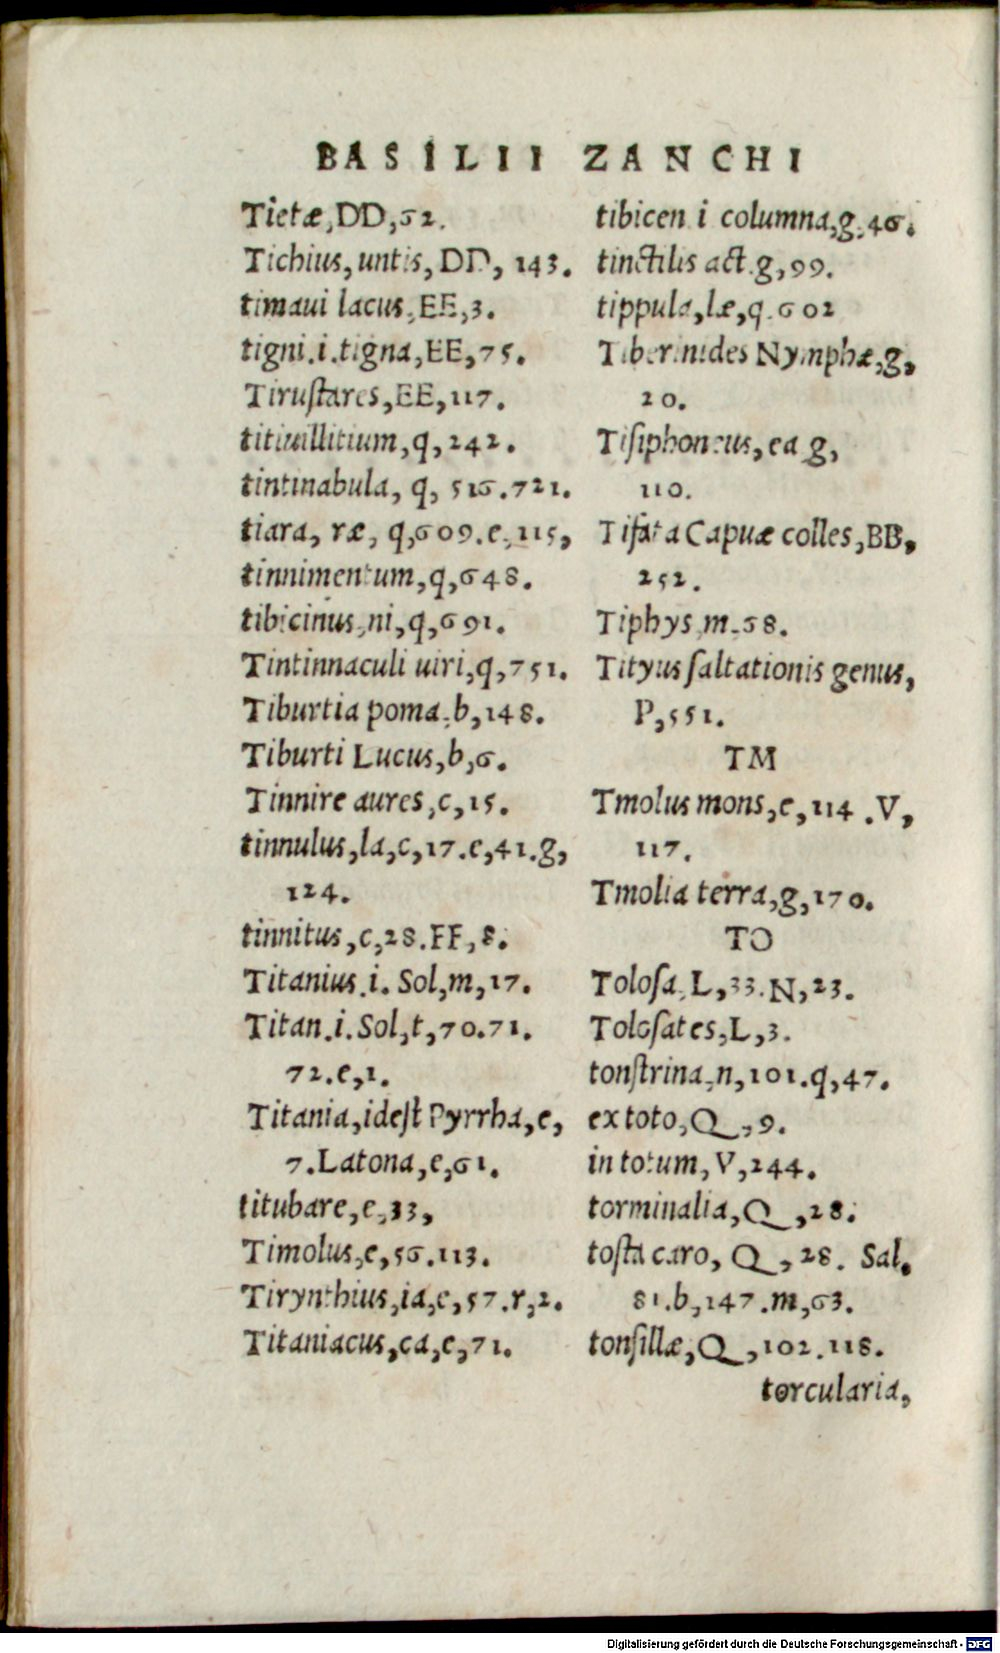 BASILII ZANCHI
Tietæ, DD, 52.
Tichius, untis, DD, 143.
timaui lacus, EE, 3.
tigni.i.tigna, EE, 75.
Tirustares, EE, 117.
titiuillitium, q, 242.
tintinabula, q, 516.721.
tiara, ræ, q, 609.e, 115,
tinnimentum, q, 648.
tibicinus, ni, q, 691.
Tintinnaculi uiri, q, 751.
Tiburtia poma, b, 148.
Tiburti Lucus, b, 6.
Tinnire aures, c, 15.
tinnulus, la, c, 17.e, 41.g,
124.
tinnitus, c, 28.FF, 8.
Titanius.i. Sol, m, 17.
Titan.i. Sol, t, 70.71.
72.e, 1.
Titania, idest Pyrrha, e,
7.Latona, e, 61.
titubare, e, 33,
Timolus, e, 56.113.
Tirynthius, ia, e, 57.r, 2.
Titaniacus, ca, e, 71.
tibicen i columna, g, 46.
tinctilis act.g, 99.
tippula, læ, q.602
Tiberinides Nymphæ, g,
20.
Tisiphoneus, ea g,
110.
Tifata Capuæ colles, BB,
252.
Tiphys, m.58.
Tityus saltationis genus,
P, 551.
TM
Tmolus mons, e, 114.V,
117.
Tmolia terra, g, 170.
TO
Tolosa, L, 33.N, 23.
Tolosates, L, 3.
tonstrina, n, 101.q, 47.
ex toto, Q, 9.
in totum, V, 244.
torminalia, Q, 28.
tosta caro, Q, 28. Sal.
81.b, 147.m, 63.
tonsillæ, Q, 102.118.
torcularia,
Digitalisierung gefördert durch die Deutsche Forschungsgemeinschaft - DFG